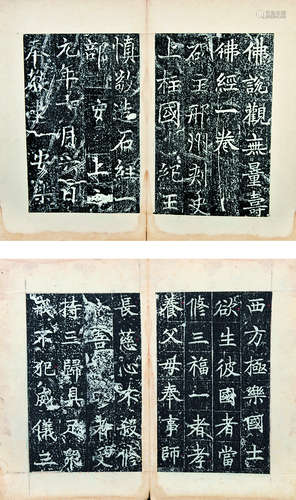 佛說觀無量壽
佛經一卷
主邢州刺史
上柱國紀王
慎敬造石經一
部安上
元年十月
奉
西方極樂國土
欲生彼國者當
修三福一者孝
養父母奉事師
長慈心不殺修
者受
持三歸具足眾
戒不犯威儀三